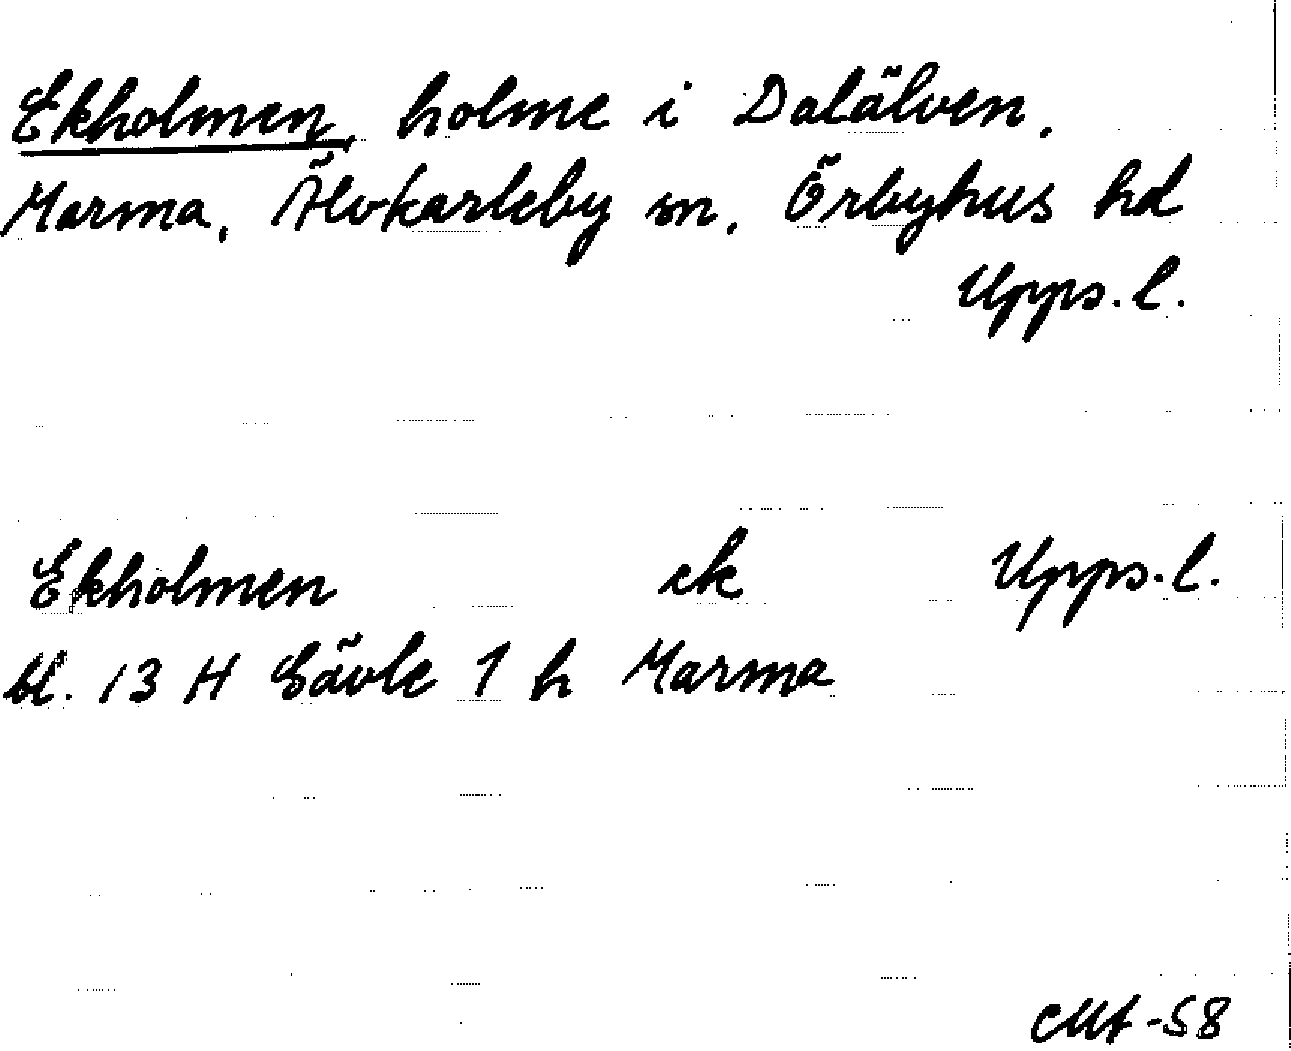 Ekholmen, holme i Dalälven,
Marma, Älvkarleby sn, Örbyhus hd
Upps. l.
Ekholmen ek Upps. l.
bl. 13 H Gävle 1 h Marma
-58